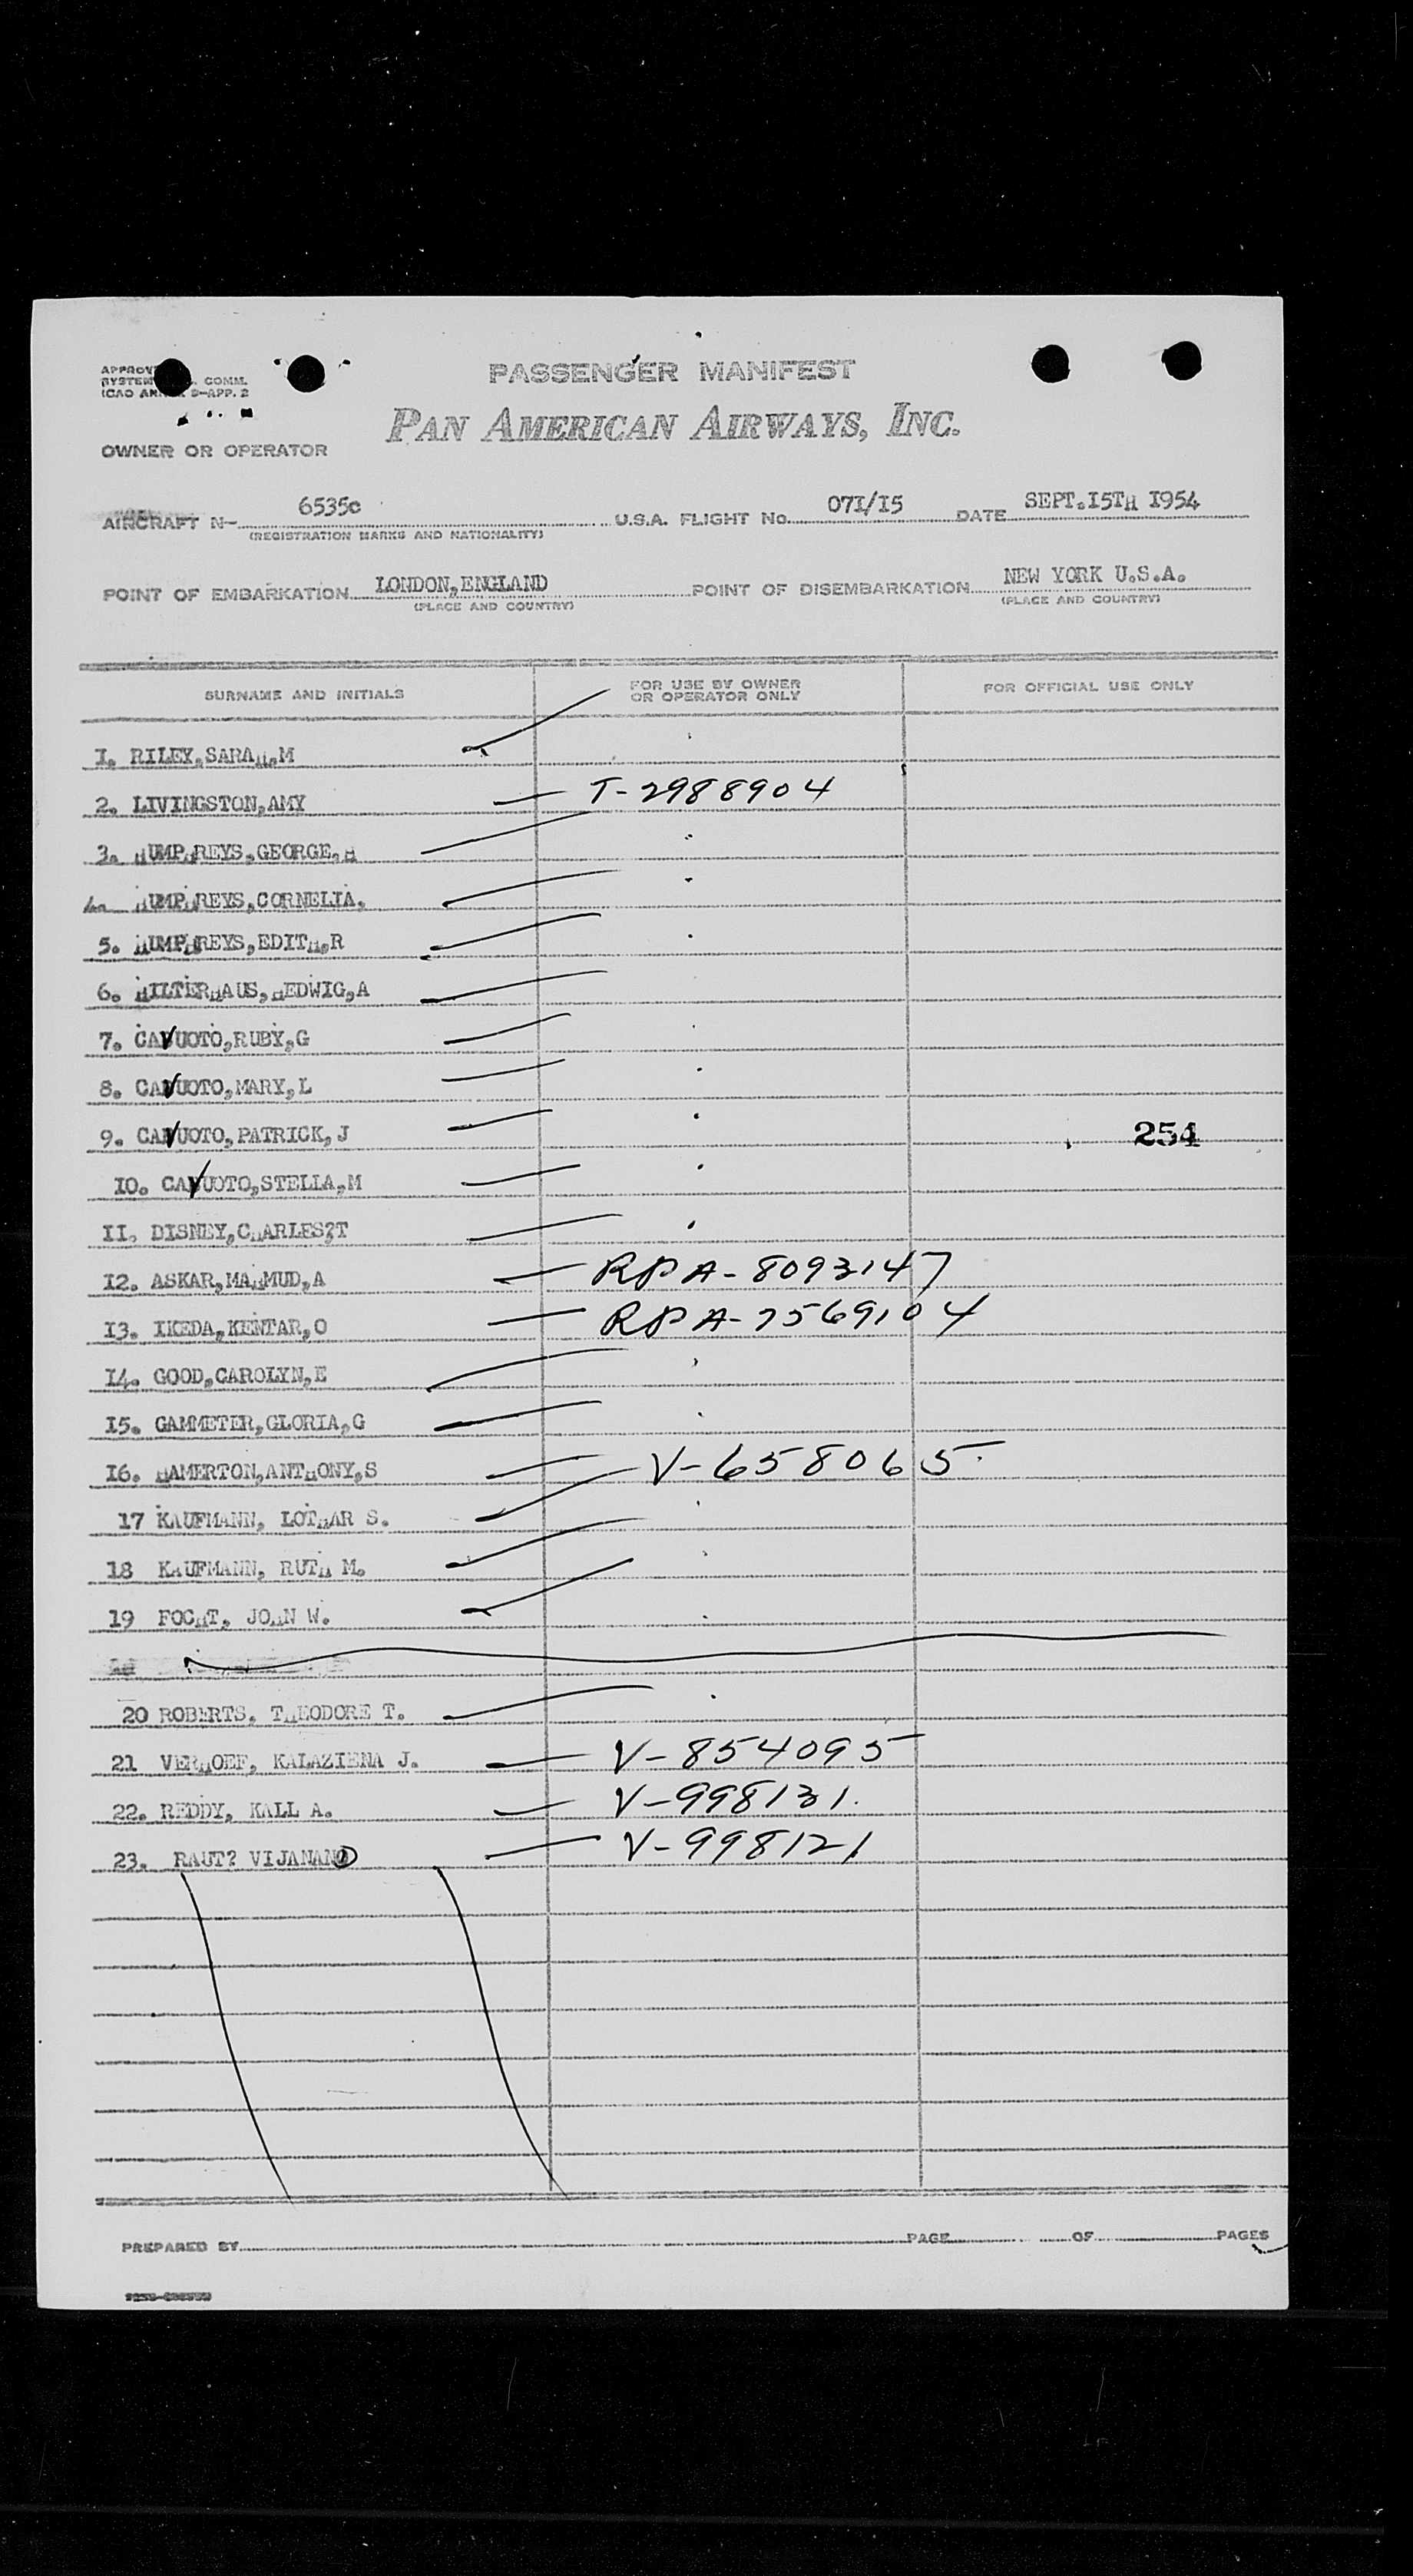 PASSENGER MANIFEST
APPROV
SYSTEM COMM.
ICAO AN 9-APP. 2
PAN AMERICAN AIRWAYS, INC.
OWNER OR OPERATOR
AIRCRAFT N- 6535c U.S.A. FLIGHT No. 07I/I5 DATE SEPT.I5TH I954
(REGISTRATION MARKS AND NATIONALITY)
POINT OF EMBARKATION LONDON,ENGLAND POINT OF DISEMBARKATION NEW YORK U.S.A.
(PLACE AND COUNTRY) (PLACE AND COUNTRY)
SURNAME AND INITIALS FOR USE BY OWNER OR OPERATOR ONLY FOR OFFICIAL USE ONLY
I. RILEY,SARAH,M
2. LIVINGSTON,AMY T-2988904
3. HUMPHREYS,GEORGE,H
4. HUMPHREYS,CORNELIA.
5. HUMPHREYS,EDITH,R
6. HILTERHAUS,HEDWIG,A
7. CAVUOTO,RUBY,G
8. CAVUOTO,MARY,L
9. CAVUOTO,PATRICK,J 254
IO. CAVUOTO,STELLA,M
II. DISNEY,CHARLES?T
I2. ASKAR,MAHMUD,A RPA-8093147
I3. IKEDA,KENTAR,O RPA-7569104
I4. GOOD,CAROLYN,E
I5. GAMMETER,GLORIA,G
I6. HAMERTON,ANTHONY,S V-658065
17 KAUFMANN, LOTHAR S.
18 KAUFMANN, RUTH M.
19 FOCHT, JOHN W.
20 ROBERTS. THEODORE T.
21 VERHOEF, KALAZIENA J. V-854095
22. REDDY, KALL A. V-998131.
23. RAUT? VIJANAND V-998121
PREPARED BY PAGE OF PAGES